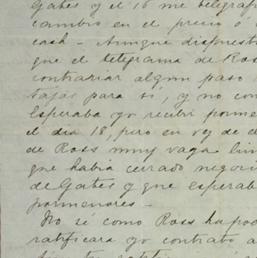 Gates y el 16 me telegraf
cambio en el precio ó
cash - Aunque dispuest
que el telegrama de Ros
contrariar algun paso
tajas para sí, y no con
Esperaba yo recibir porme
el dia 18, pero en vez de d
de Ross muy vaga
que habia cerrado negoci
de Gates y que esperab
pormenores -
No sé como Ross ha pod
ratificara yo contrato a